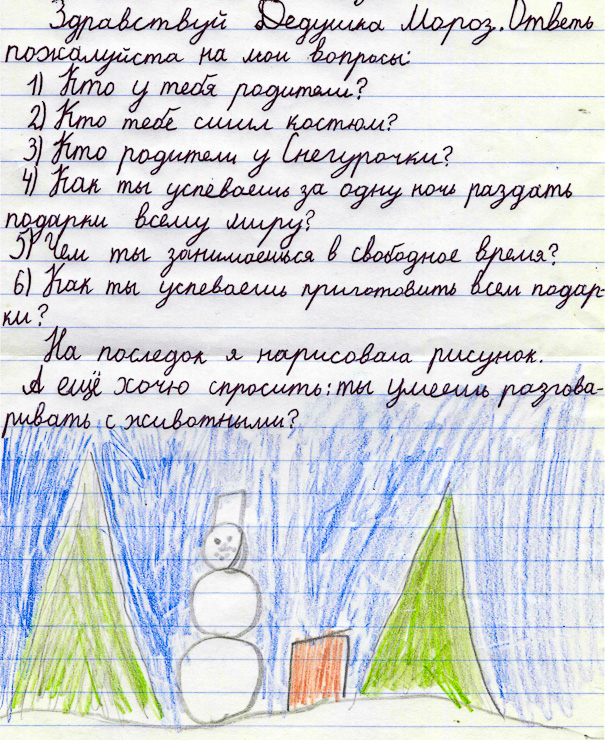 Здравствуй Дедушка Мороз. Ответь
пожалуйста на мои вопросы:
1) Кто у тебя родители?
2) Кто тебе сшил костюм?
3) Кто родители у Снегурочки?
4) Как ты успеваешь за одну ночь раздать
подарки всему миру?
5) Чем ты занимаешься в свободное время?
6) Как ты успеваешь приготовить всем подар-
ки?
На последок я нарисовала рисунок.
А ещё хочю спросить: ты умеешь разгова-
ривать с животными?